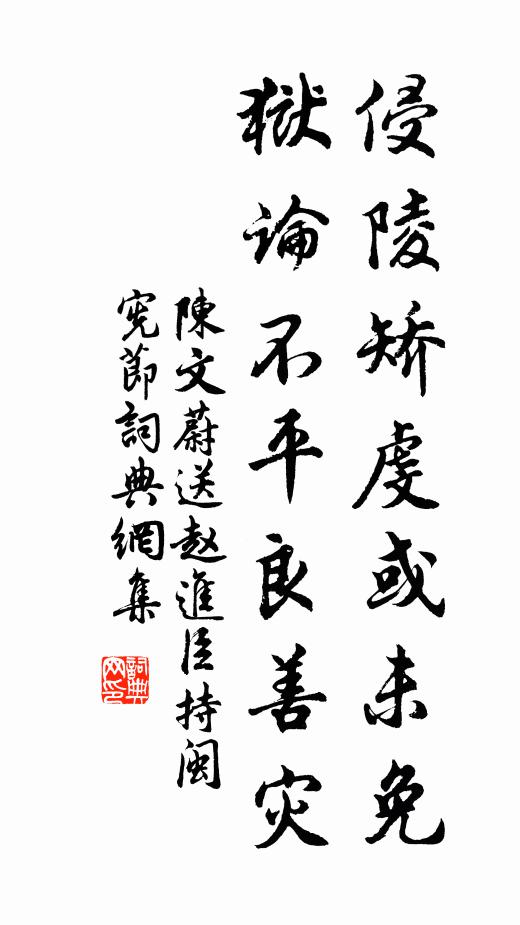 侵陵矫虔或未免
獄論不平良善灾
陳文蔚送赵進臣持闽
宪節詞典網集
詞典網印